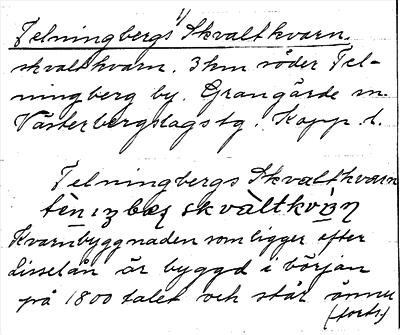 Felningbergs Skvaltkvarn.
skvaltkvarn. 3 km söder Fel-
ningberg by. Grangärde sn.
Västerbergslags tg. Kopp. l.
Felningbergs Skvaltkvarn
skvàltkvɑ̀ṇ
Kvarnbyggnaden som ligger efter
Lisselån är byggd i början
på 1800 talet och står ännu
(forts)